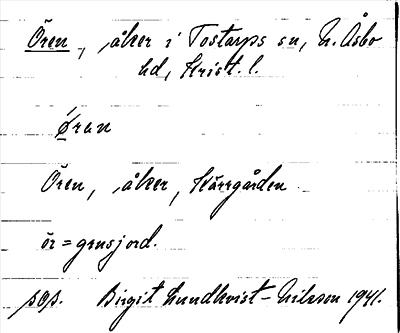 Ören, åker i Tostarps sn, N. Åsbo
hd, Krist. l.
øran
Ören, åker, Kärrgården
ör = grusjord.
pop. Birgit Lundkvist-Nilsson 1941.